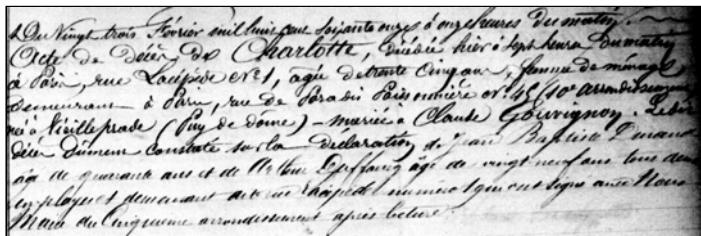 Du Vingt trois février mil huit cent soixante onze à onze heures du matin.
Acte de décès de Charlotte, décédée hier à sept heures du matin
à Paris, rue Lacépède N° 1, agée de trente cinq ans, femme de ménage
demeurant à Paris, rue de Paradis Poissonnière N° 45 (10e arrondissement
née à Vieilleprade (Puy de dôme) – mariée à Claude Gouvignon. Le dit
décès dûment constaté sur la déclaration de Jean Baptiste
âgé de quarante ans et de Arthur âgé de vingt neuf ans tous deux
employés et demeurant rue Lacépède numéro 1 qui ont signé avec Nous
Maire du Cinquième arrondissement après lecture.